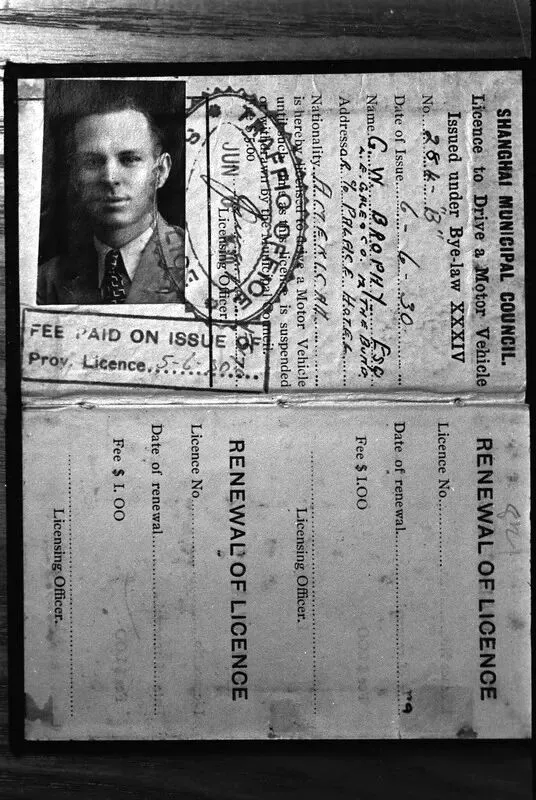 SHANGHAI MUNICIPAL COUNCIL.
Licence to Drive a Motor Vehicle
Issued under Bye-law XXXIV
No. 2864-"B"
Date of Issue 6-6-30
Name G. W. BROPHY Esq
THE BUND
Address PALACE HOTEL
Nationality AMERICAN
is hereby licensed to drive a Motor Vehicle
until such time as this licence is suspended
or withdrawn by the Municipal Council.
$ 5.00
Licensing Officer.
TRAFFIC OFFICE
JUN
FEE PAID ON ISSUE OF
Prov. Licence 5-6-30
RENEWAL OF LICENCE
Licence No.
Date of renewal
Fee $ 1.00
Licensing Officer.
RENEWAL OF LICENCE
Licence No.
Date of renewal
Fee $ 1.00
Licensing Officer.